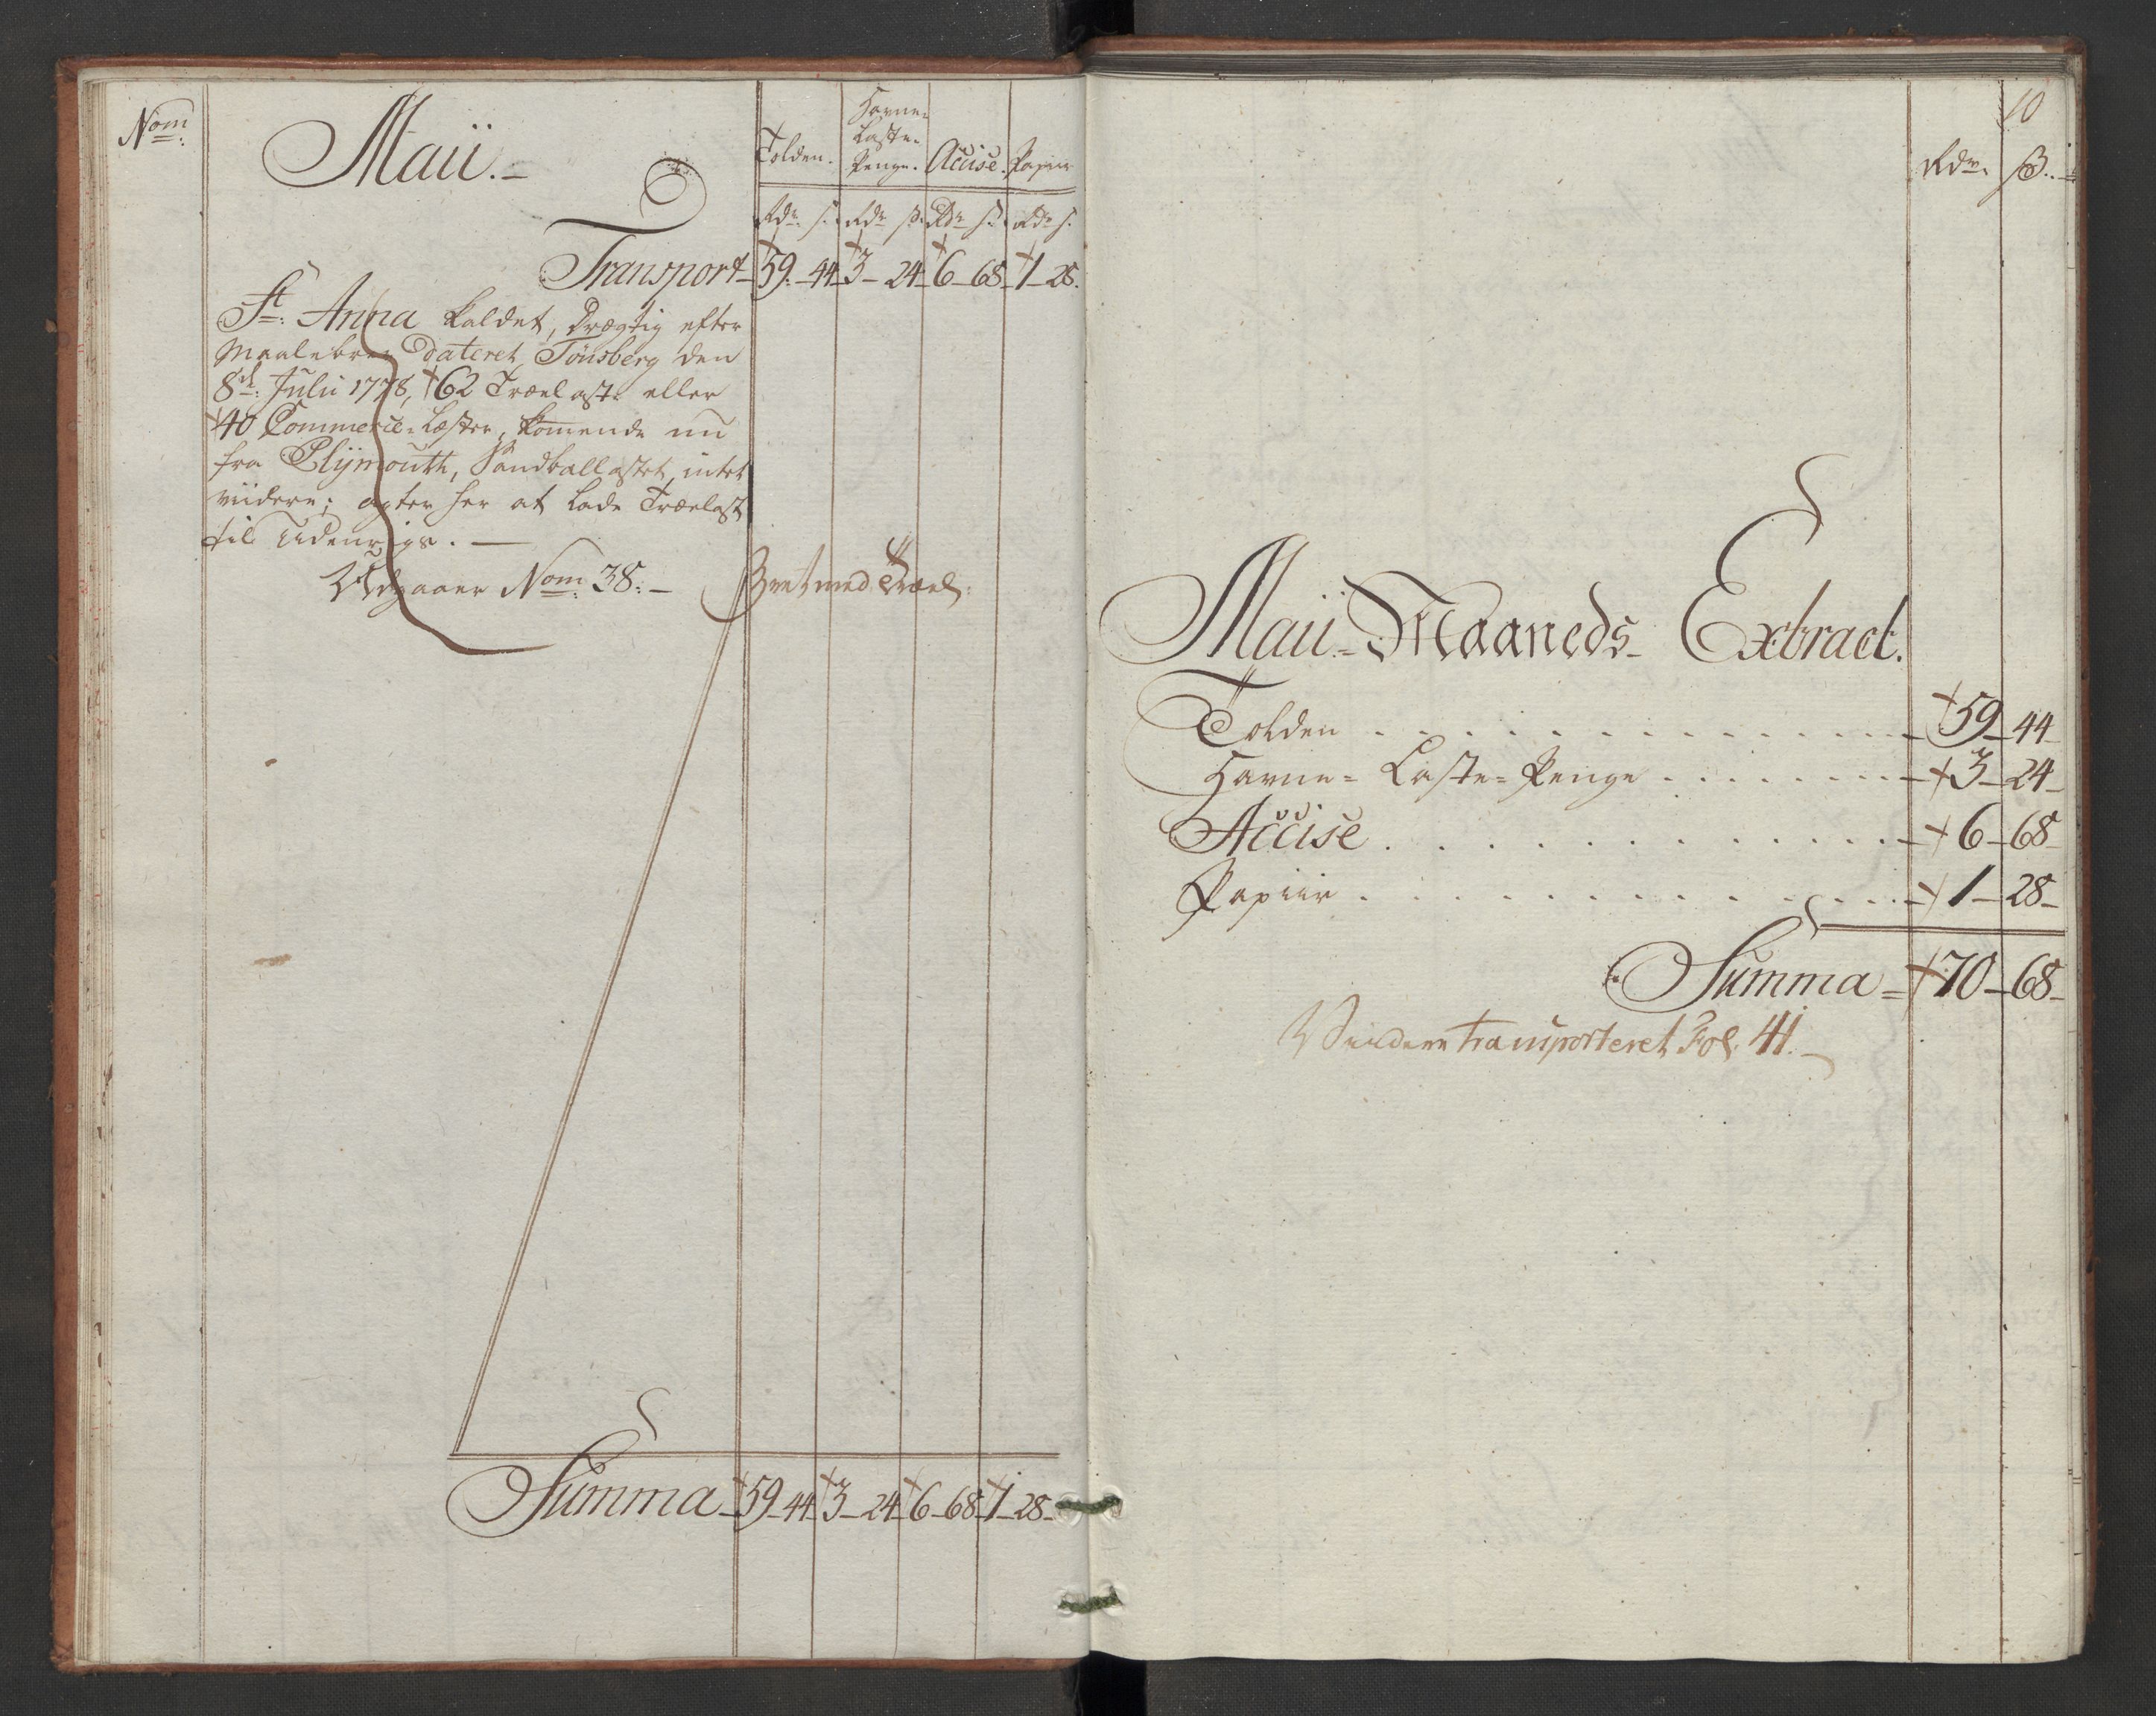 Nom:
Maii.
Tolden.
Havne-
Laste-
Penge.
Accise.
Papiir
Rdr. s. Rdr s. Rdr s. Rdr s.
Transport 59. 44 3 24 6 68 1 28.
St: Anna kaldet, drægtig efter
Maalebrev dateret Tönsberg den
8de Julii 1778, 62 Trælast eller
40 Commerce-Læster, kommende nu
fra Plijmouth, Sandballastet, intet
viidere; agter her at lade Trælast
til Udenrigs.
Udgaaer Nom: 38.
med Træl:
Summa 59 44 3 24 6 68 1 28
10
Rdr. ß.
Maii Maaneds Extract.
Tolden . . . 59 44
Havne-Laste-Penge . . . 3 24
Accise . . . 6 68
Papiir . . . 1 28
Summa 70 68
Viidere transporteret Fol. 41.